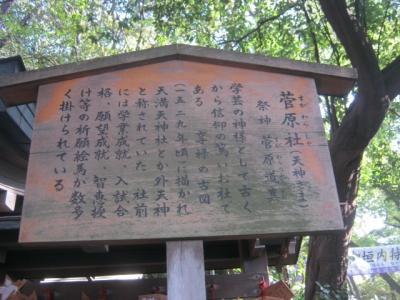 菅原社（天神さま）
祭神 菅原道真
学芸の神様として古く
から信仰の篤いお社で
ある 享禄の古図
（一五二九年頃に描かれ
天満天神社とか外天神
と称されていた 社前
には学業成就、入試合
格、願望成就、智恵授
け等の祈願絵馬が数多
く掛けられている
垣内特